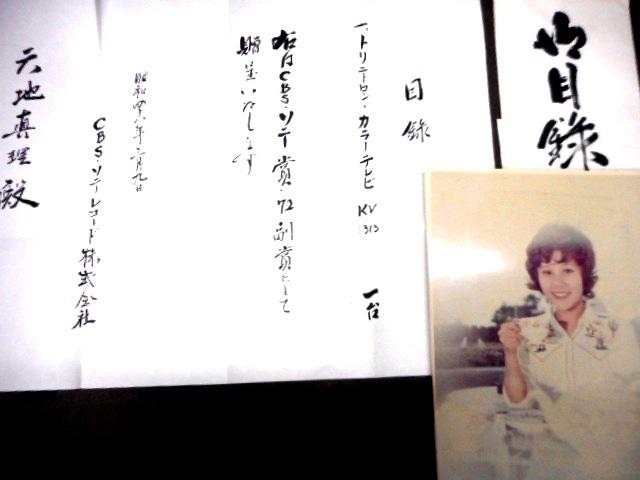 御目録
目録
一、トリニトロン・カラーテレビ KV1313 一台
右はCBS・ソニー賞・72副賞として
贈呈いたします
昭和四八年二月九日
CBS・ソニーレコード株式会社
天地真理殿